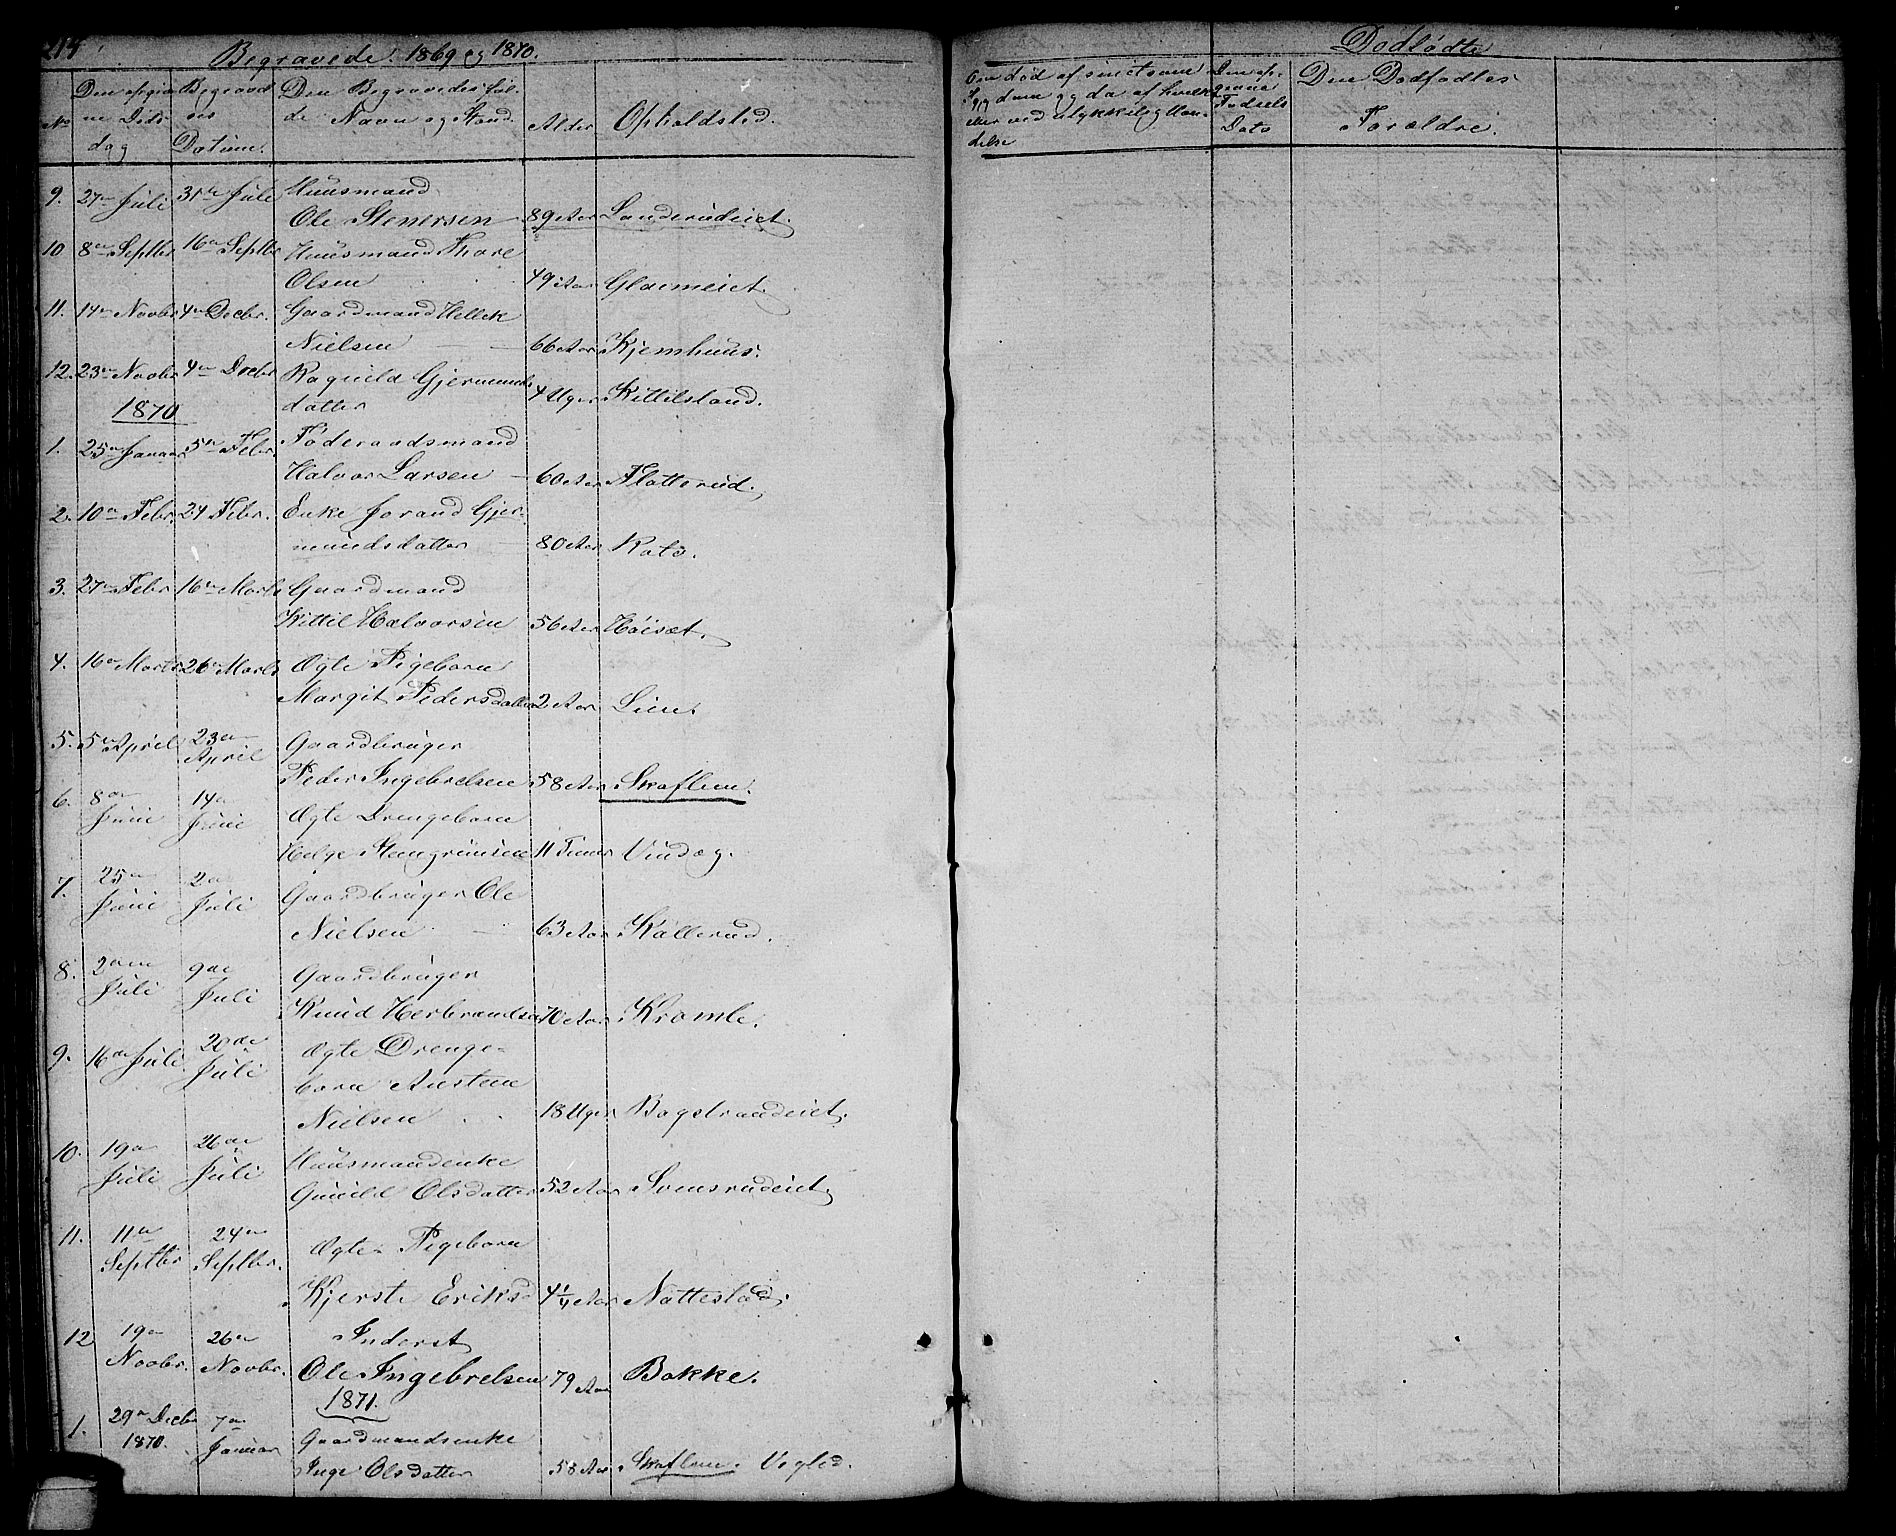 Begravede 1869 og 1870.
No
Den angivne Dødsdag
Begravelses Datum.
Den Begravedes fulde Navn og Stand.
Alder
Opholdsted.
9. 27de Juli 31te Juli Huusmand
Ole Stenersen 89 Aar Landerudeiet.
10 8de Septbr 16de Septbr Huusmand Thore
Olsen 49 Aar Glaimeiet.
11. 14de Novbr 4de Decbr. Gaardmand Hellek
Nielsen 66 Aar Kjemhuus.
12. 23de Novbr 4de Decbr Ragnild Gjermunds
datter 4 Uger Kittilsland.
1870
1. 25de Januar 5te Febr. Føderaadsmand
Halvor Larsen 60 Aar Flatterud.
2. 10de Febr. 24 Febr. Enke Jorand Gjer-
mundsdatter 80 Aar Rato.
3. 27de Febr 16de Marts Gaardmand
Kittil Halvorsen 56 Aar Høisæt.
4. 16de Marts 26de Marts Ægte Pigebarn
Margit Pedersdatter 2 Aar Lien.
5. 5te April 23de April Gaardbruger
Peder Ingebretsen 58 Aar Skaflem.
6. 8de Juni 14de Juni Ægte Drengebarn
Helge Stengrimsen 11 Timer Vindeg.
7. 25de Juni 2den Juli Gaardbruger Ole
Nielsen 63 Aar Kallerud.
8. 2den Juli 9de Juli Gaardbruger
Knud Herbrandsen 70 Aar Kromle.
9. 16de Juli 20de Juli Ægte Drenge-
barn Austen
Nielsen 18 Uger Bagstrandeiet.
10. 19de Juli 26de Juli Huusmandenke
Gunild Olsdatter 52 Aar Svensrudeiet.
11. 11te Septbr 24de Septbr. Ægte Pigebarn
Kjerste Eriksd 4 1/4 Aar Nattestad.
12 19de Novbr. 26de Novbr. Inderst
Ole Ingebretsen 79 Aar Bakke.
1871.
1. 29de Decbr 1870. 7de Januar Gaardmandsenke
Inge Olsdatter 58 Aar Skaflem. Veglid.
Dødfødte
Om død af smitsom Sygdom og da af hvilken eller ved ulykkelig Hændelse
Den angivne Fødsels Dato
Den Dødfødtes
Forældre.